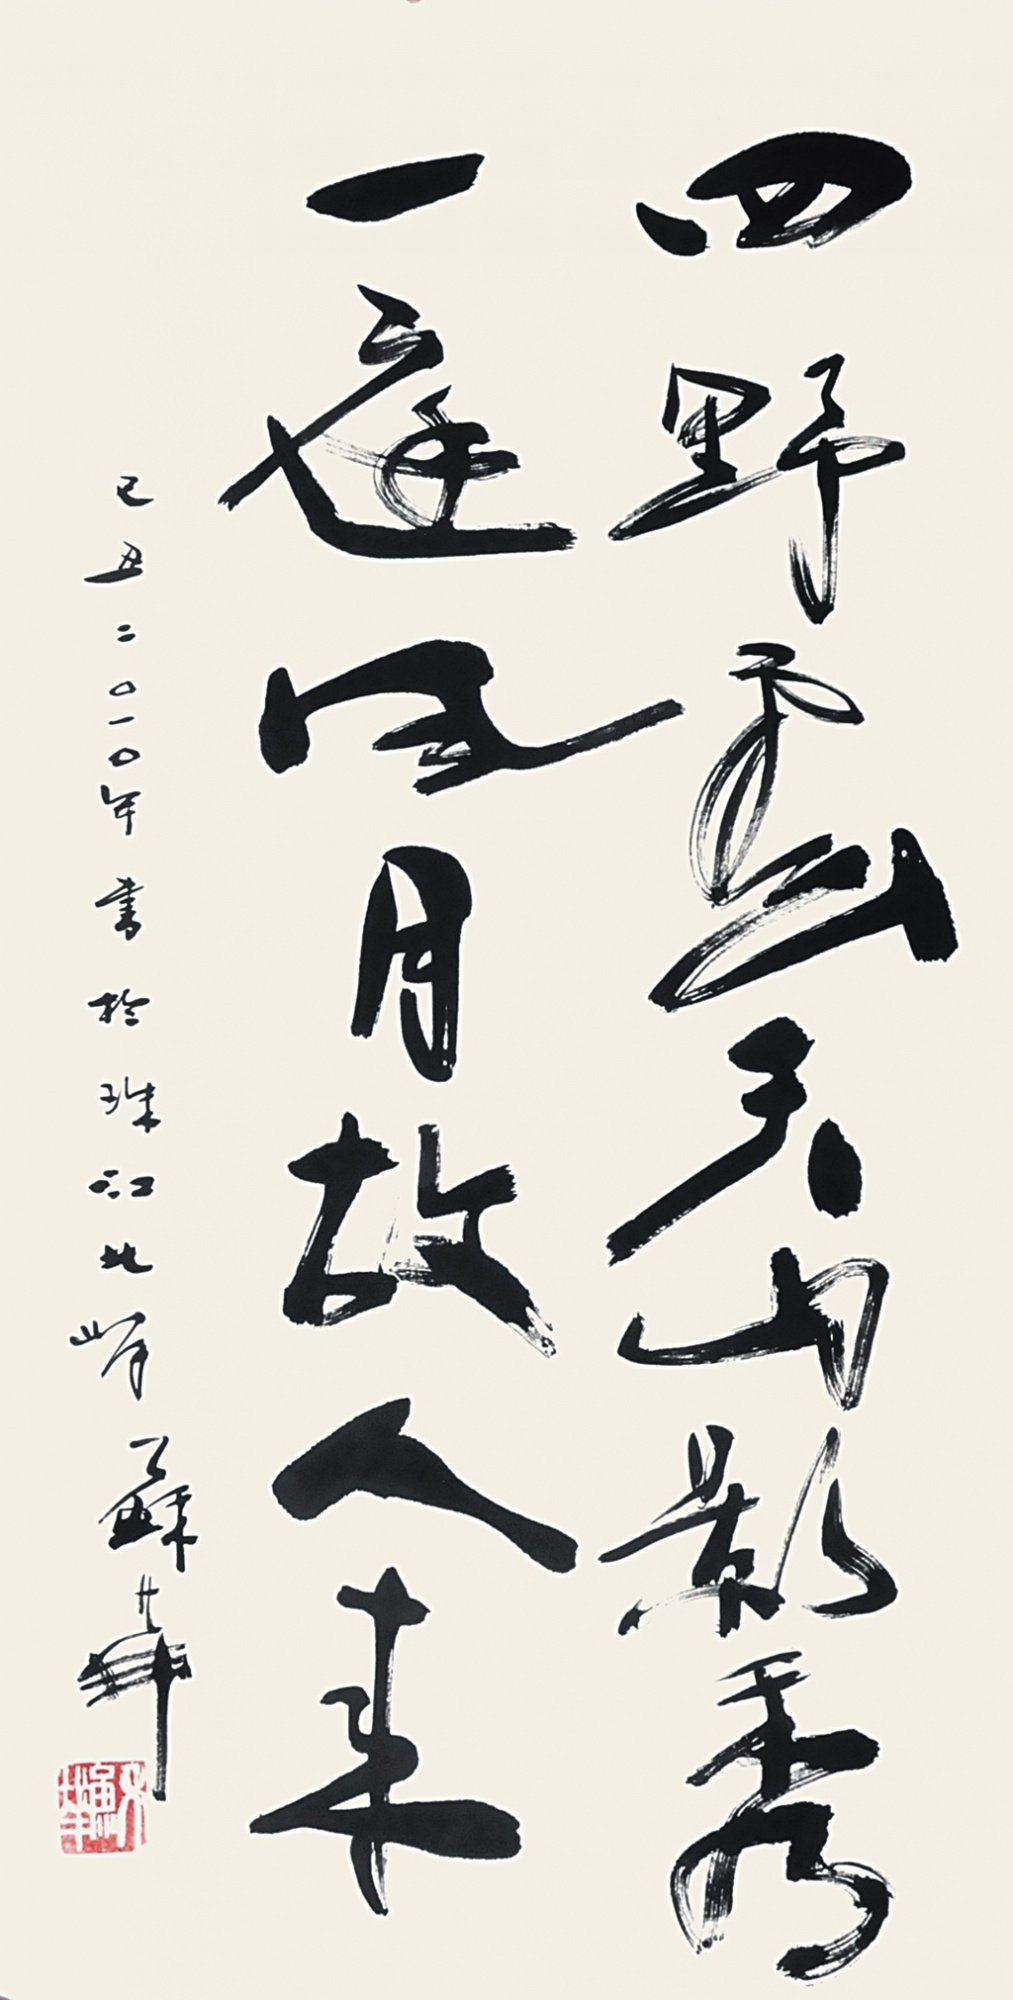 四野雲出天山影秀
一庭風月故人来
己丑二〇一〇年書於珠江北岸 蘇華